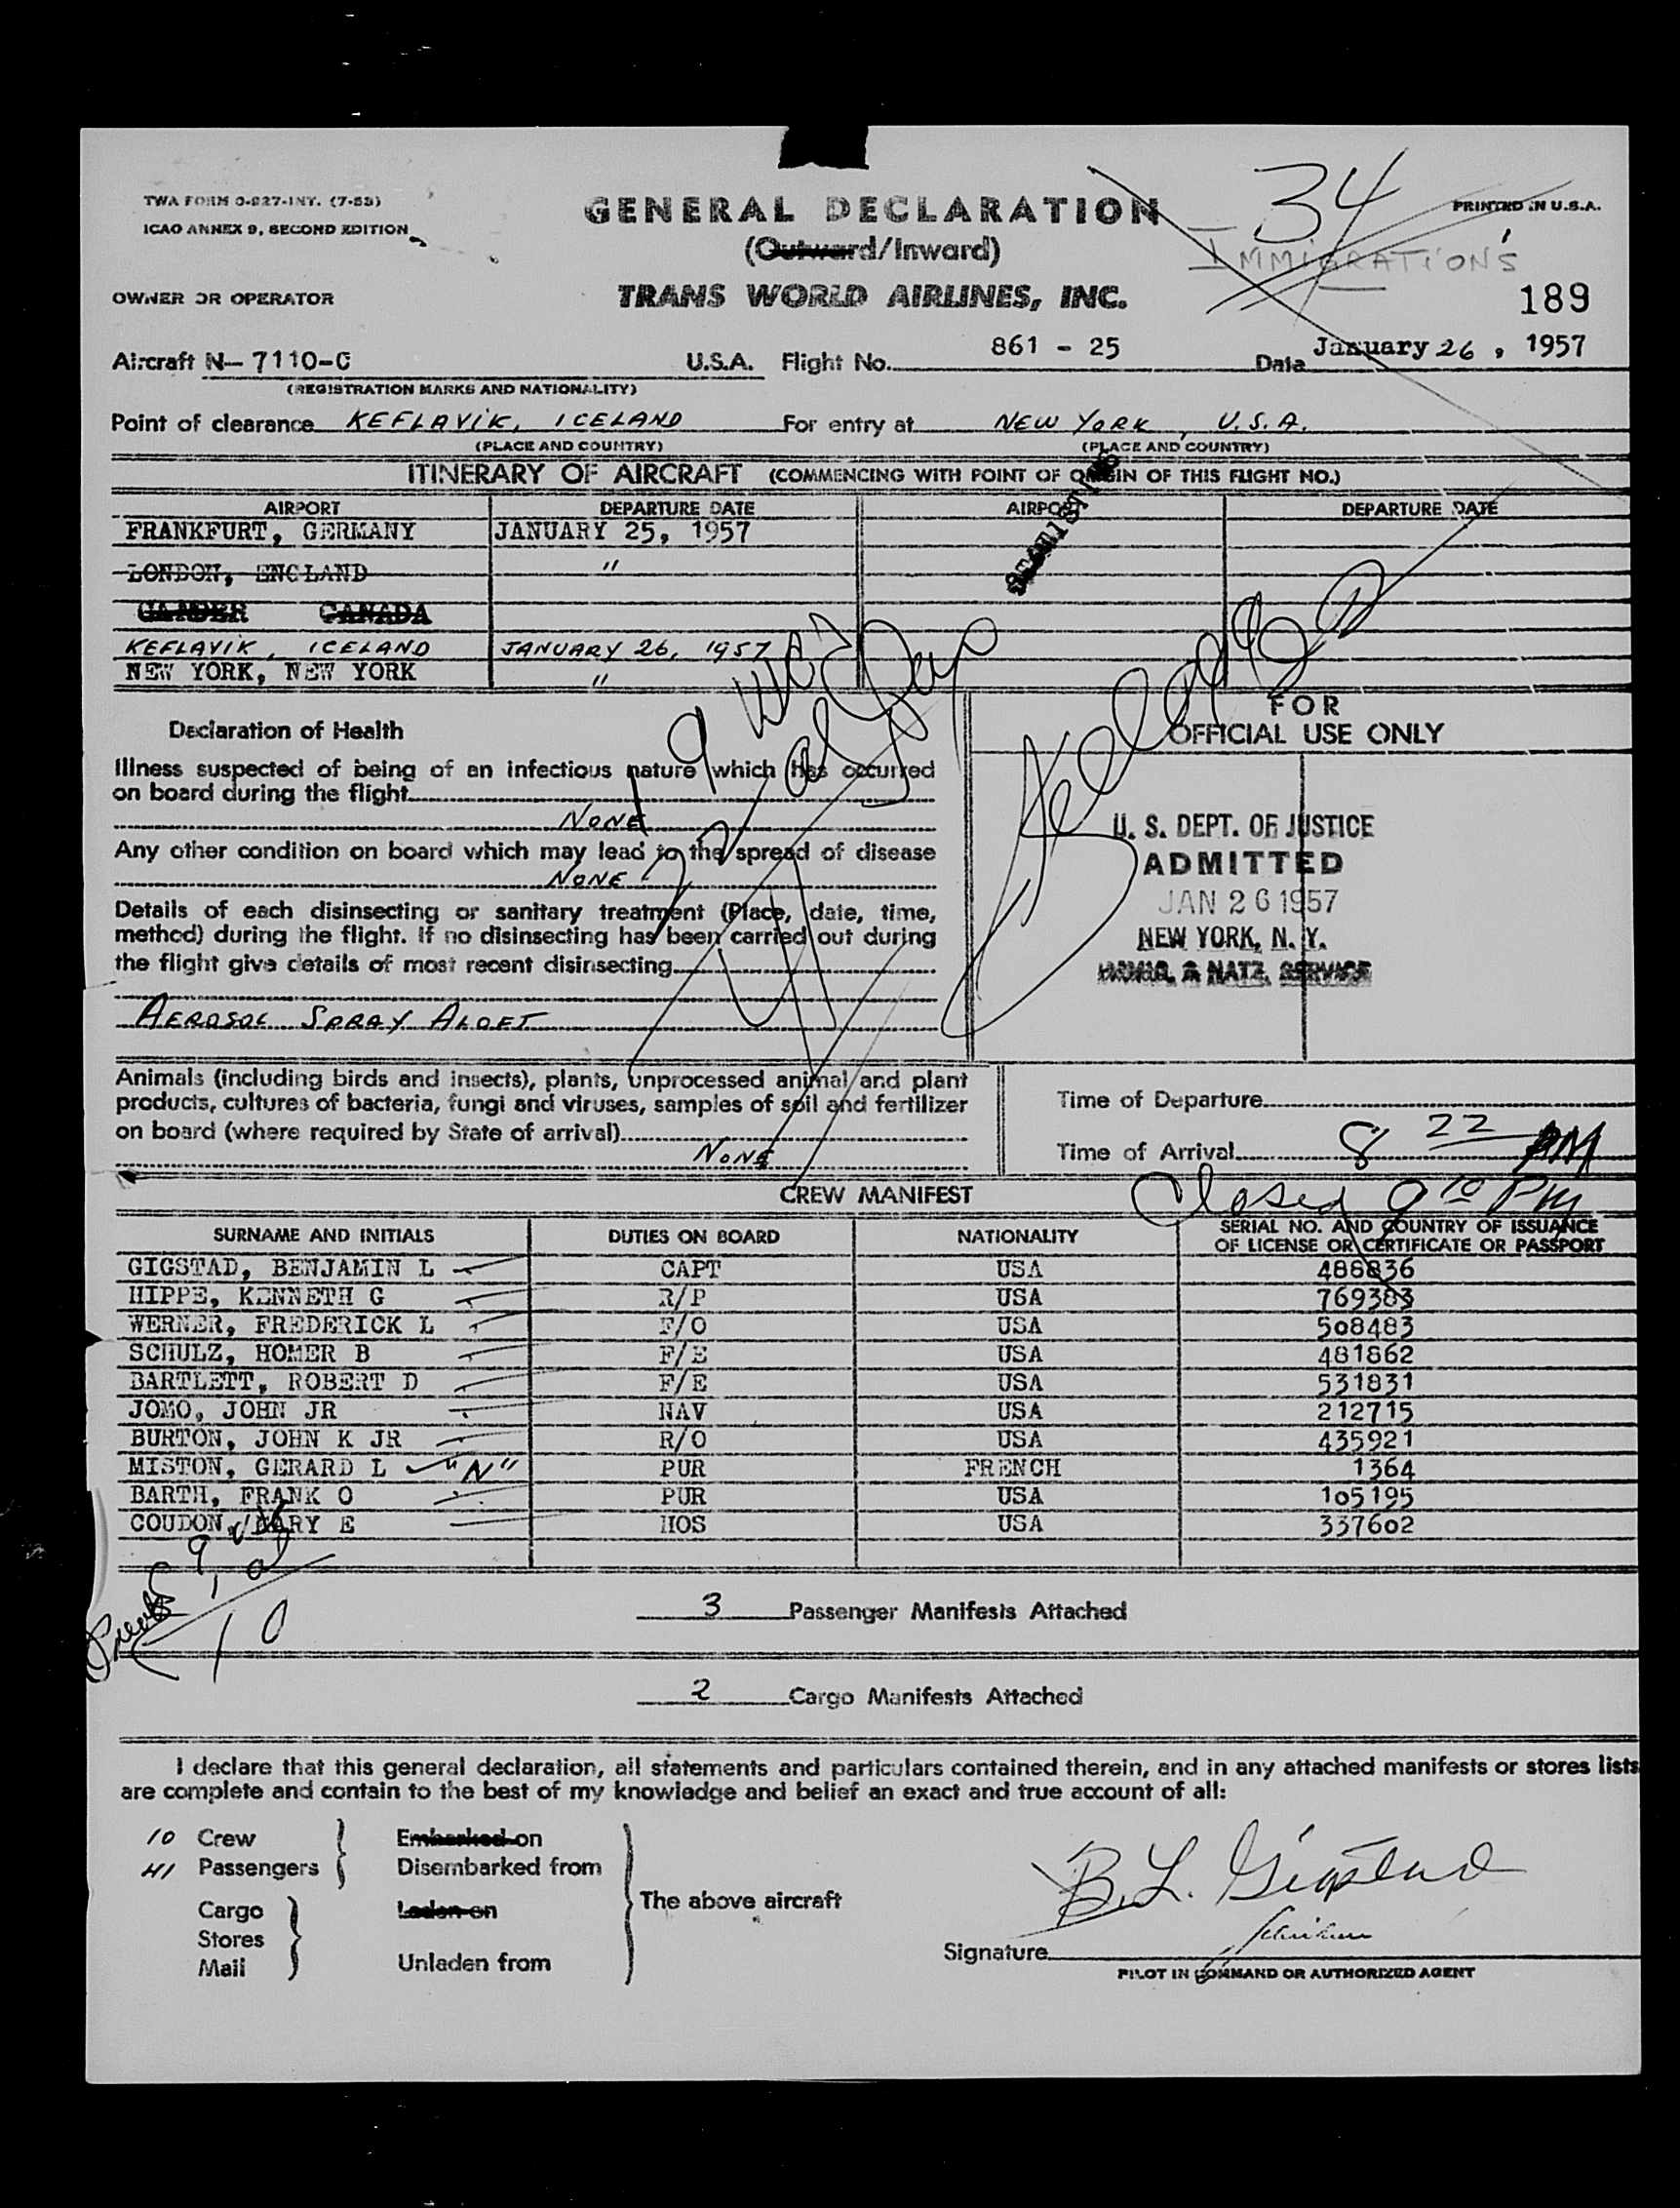 TWA FORM O-827-INT. (7-53)
ICAO ANNEX 9, SECOND EDITION
GENERAL DECLARATION
(Outward/Inward)
34
PRINTED IN U.S.A.
IMMIGRATIONS
OWNER OR OPERATOR
TRANS WORLD AIRLINES, INC.
189
Aircraft N-7110-C U.S.A. Flight No. 861 - 25 Date January 26, 1957
(REGISTRATION MARKS AND NATIONALITY)
Point of clearance KEFLAVIK, ICELAND For entry at NEW YORK, U.S.A.
(PLACE AND COUNTRY) (PLACE AND COUNTRY)
ITINERARY OF AIRCRAFT (COMMENCING WITH POINT OF ORIGIN OF THIS FLIGHT NO.)
AIRPORT DEPARTURE DATE AIRPORT DEPARTURE DATE
FRANKFURT, GERMANY JANUARY 25, 1957
LONDON, ENGLAND "
GANDER CANADA
KEFLAVIK, ICELAND JANUARY 26, 1957
NEW YORK, NEW YORK "
Declaration of Health
Illness suspected of being of an infectious nature which has occurred
on board during the flight
NONE
Any other condition on board which may lead to the spread of disease
NONE
Details of each disinsecting or sanitary treatment (Place, date, time,
method) during the flight. If no disinsecting has been carried out during
the flight give details of most recent disinsecting
AEROSOL SPRAY ALOFT
FOR
OFFICIAL USE ONLY
U. S. DEPT. OF JUSTICE
ADMITTED
JAN 26 1957
NEW YORK, N. Y.
IMMIG. & NATZ. SERVICE
Animals (including birds and insects), plants, unprocessed animal and plant
products, cultures of bacteria, fungi and viruses, samples of soil and fertilizer
on board (where required by State of arrival)
NONE
Time of Departure
Time of Arrival 8 22 PM
Closed 9 10 PM
CREW MANIFEST
SURNAME AND INITIALS DUTIES ON BOARD NATIONALITY SERIAL NO. AND COUNTRY OF ISSUANCE
OF LICENSE OR CERTIFICATE OR PASSPORT
GIGSTAD, BENJAMIN L CAPT USA 486836
HIPPE, KENNETH G R/P USA 769383
WERNER, FREDERICK L F/O USA 508483
SCHULZ, HOMER B F/E USA 481862
BARTLETT, ROBERT D F/E USA 531831
JOMO, JOHN JR NAV USA 212715
BURTON, JOHN K JR R/O USA 435921
MISTON, GERARD L "N" PUR FRENCH 1364
BARTH, FRANK O PUR USA 105195
COUDON, MARY E HOS USA 337602
10
3 Passenger Manifests Attached
2 Cargo Manifests Attached
I declare that this general declaration, all statements and particulars contained therein, and in any attached manifests or stores lists
are complete and contain to the best of my knowledge and belief an exact and true account of all:
10 Crew
41 Passengers
Embarked on
Disembarked from
Cargo
Stores
Mail
Laden on
Unladen from
The above aircraft
B.L. Gigstad
Signature
PILOT IN COMMAND OR AUTHORIZED AGENT